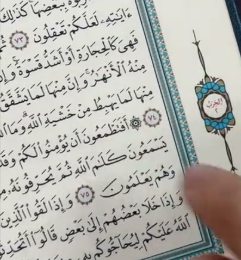 ءَايَـٰتِهِۦ لَعَلَّكُمْ تَعْقِلُونَ ٧٣
فَهِىَ كَٱلْحِجَارَةِ أَوْ أَشَدُّ قَسْوَةً وَإِنَّ
مِنْهُ ٱلْأَنْهَـٰرُ وَإِنَّ مِنْهَا لَمَا يَشَّقَّقُ
مِنْهَا لَمَا يَهْبِطُ مِنْ خَشْيَةِ ٱللَّهِ وَمَا ٱللَّهُ
٧٤ أَفَتَطْمَعُونَ أَن يُؤْمِنُوا۟ لَكُمْ وَقَدْ
يَسْمَعُونَ كَلَـٰمَ ٱللَّهِ ثُمَّ يُحَرِّفُونَهُۥ مِنۢ
وَهُمْ يَعْلَمُونَ ٧٥ وَإِذَا لَقُوا۟ ٱلَّذِينَ
وَإِذَا خَلَا بَعْضُهُمْ إِلَىٰ بَعْضٍ قَالُوٓا۟ أَتُحَدِّثُونَهُم
ٱللَّهُ عَلَيْكُمْ لِيُحَآجُّوكُم بِهِۦ